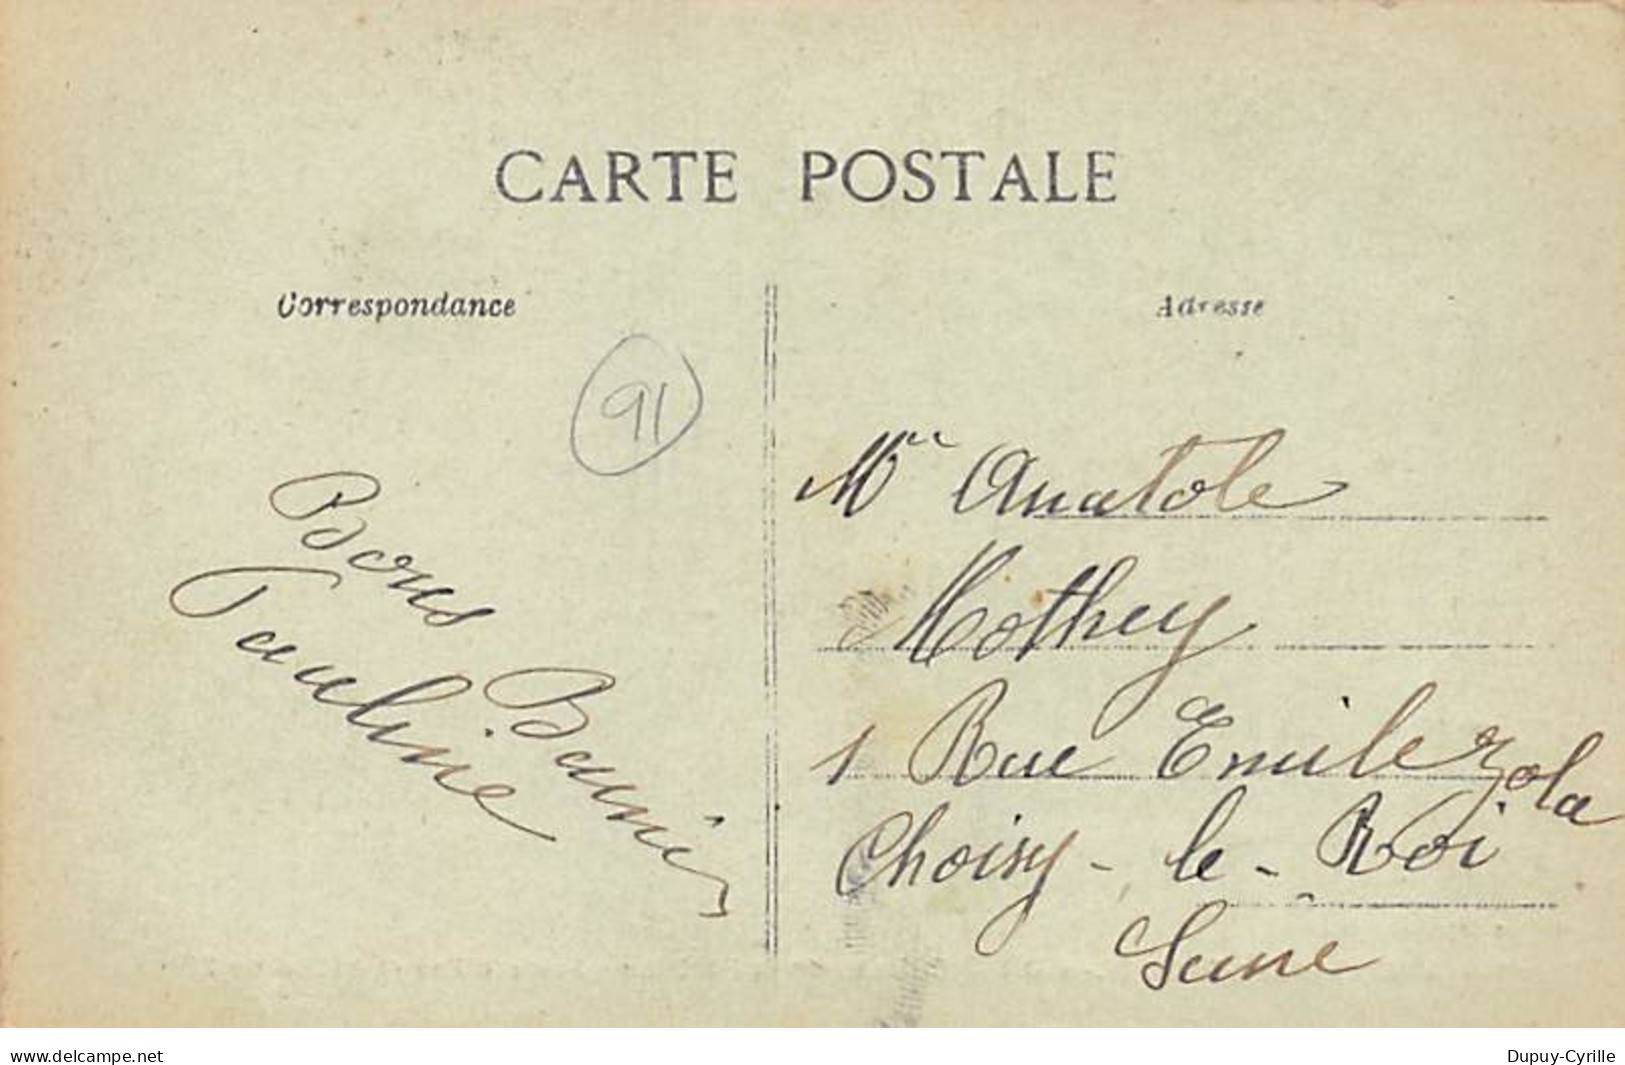 CARTE POSTALE
Correspondance
Adresse
91
Bons Baisers
Pauline
Anatole
Mothey
1 Rue Emile Zola
Choisy-le-Roi
Seine
delcampe.net
Dupuy-Cyrille